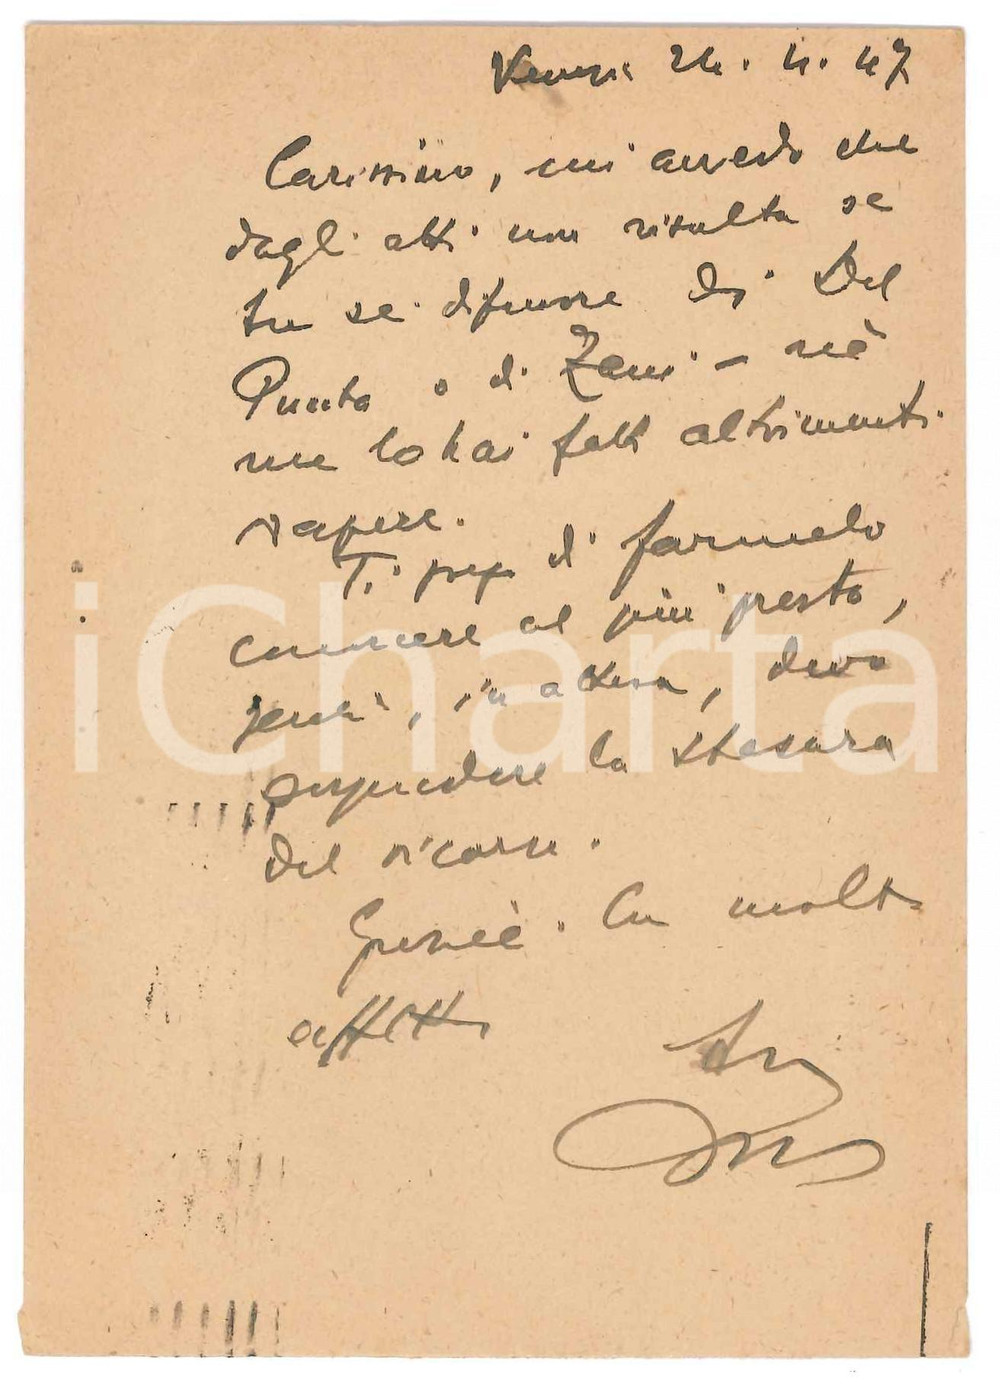 Venezia 24.4.47
Carissimo, mi avvedo che
dagli atti non risulta se
tu sei difensore di Del
Punta o di Zani - nè
me lo hai fatto altrimenti
sapere.
Ti prego di farmelo
conoscere al più presto,
perché, in attesa, devo
sospendere la stesura
del ricorso.
Grazie. Con molto
affetto
iCharta